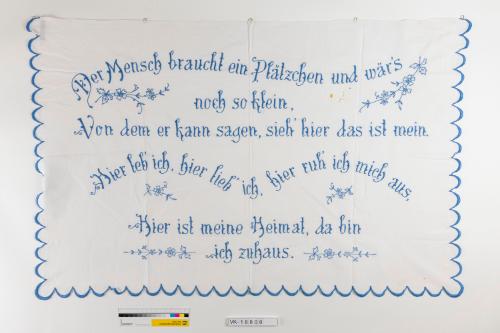 Der Mensch braucht ein Plätzchen und wär's
noch so klein,
Von dem er kann sagen, sieh' hier das ist mein.
Hier leb' ich, hier lieb' ich, hier ruh' ich mich aus,
Hier ist meine Heimat, da bin
ich zuhaus.